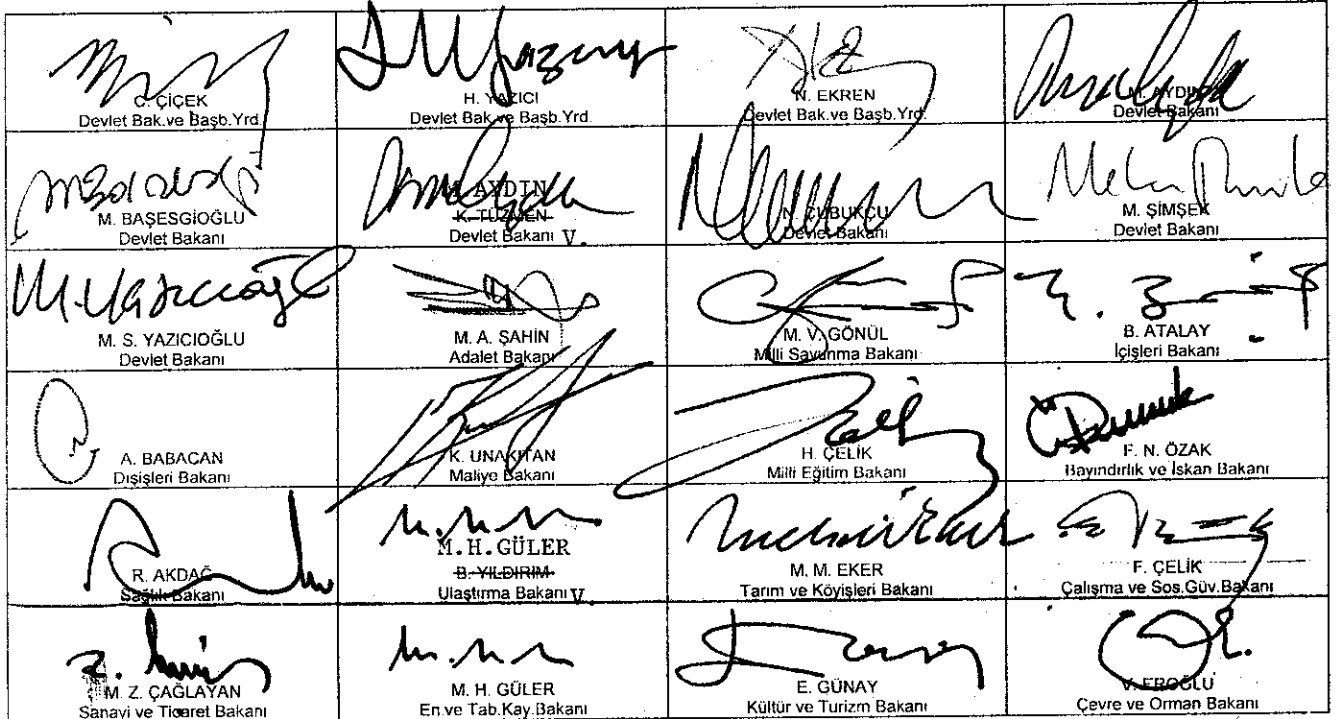 C. ÇİÇEK
Devlet Bak.ve Başb.Yrd.
H. YAZICI
Devlet Bak.ve Başb.Yrd.
N. EKREN
Devlet Bak.ve Başb.Yrd.
M. AYDIN
Devlet Bakanı
M. BAŞESGİOĞLU
Devlet Bakanı
M. AYDIN
K. TÜZMEN
Devlet Bakanı V.
N. ÇUBUKÇU
Devlet Bakanı
M. ŞİMŞEK
Devlet Bakanı
M. S. YAZICIOĞLU
Devlet Bakanı
M. A. ŞAHİN
Adalet Bakanı
M. V. GÖNÜL
Milli Savunma Bakanı
B. ATALAY
İçişleri Bakanı
A. BABACAN
Dışişleri Bakanı
K. UNAKITAN
Maliye Bakanı
H. ÇELİK
Milli Eğitim Bakanı
F. N. ÖZAK
Bayındırlık ve İskan Bakanı
R. AKDAĞ
Sağlık Bakanı
M.H.GÜLER
B. YILDIRIM
Ulaştırma Bakanı V.
M. M. EKER
Tarım ve Köyişleri Bakanı
F. ÇELİK
Çalışma ve Sos.Güv.Bakanı
M. Z. ÇAĞLAYAN
Sanayi ve Ticaret Bakanı
M. H. GÜLER
En.ve Tab.Kay.Bakanı
E. GÜNAY
Kültür ve Turizm Bakanı
V. EROĞLU
Çevre ve Orman Bakanı